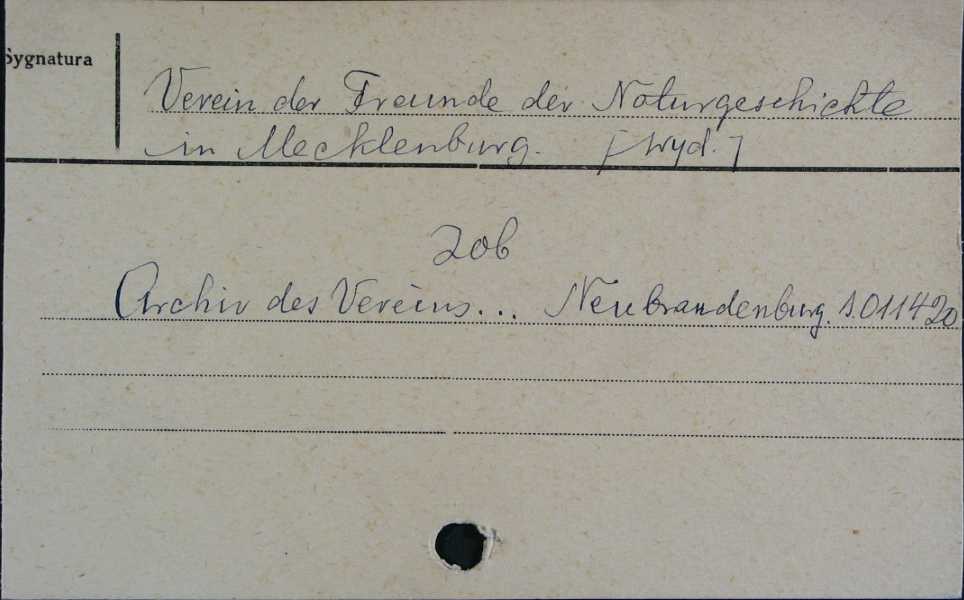 Sygnatura
Verein der Freunde der Naturgeschichte
in Mecklenburg. [wyd.]
zob
Archiv des Vereins... Neubrandenburg. S.011420